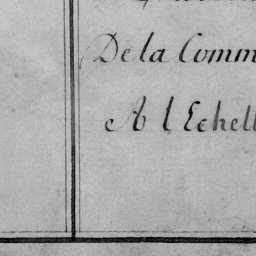 De la Comm
A l Echell